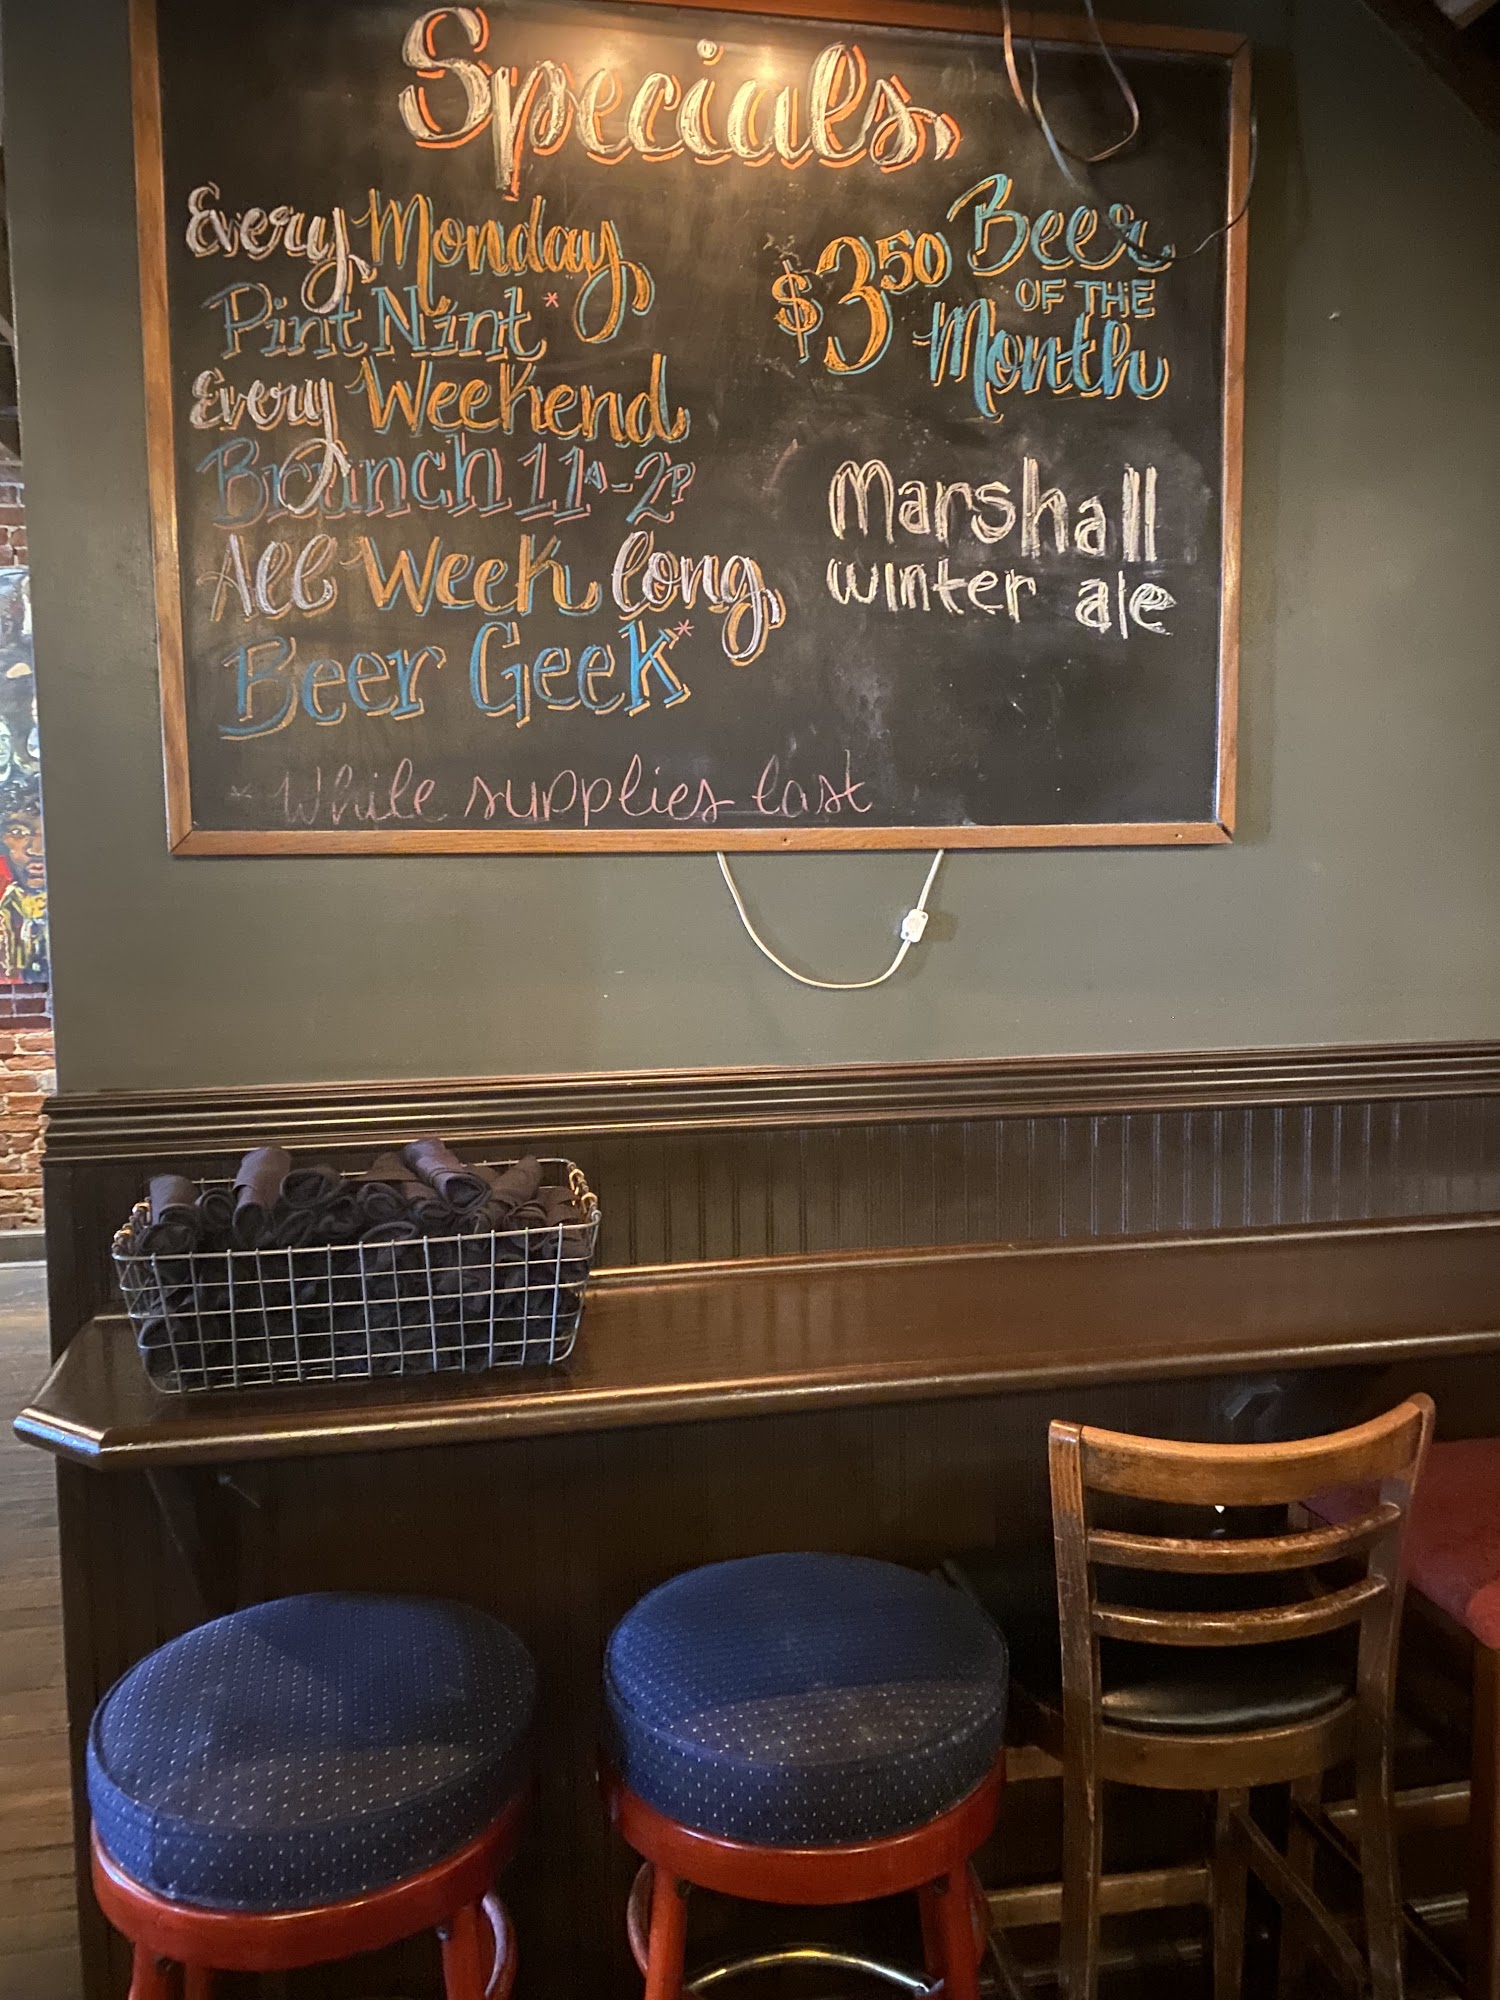 Specials
Every Monday
Pint Nint*
Every Weekend
Brunch 11A-2P
All Week long
Beer Geek*
* While supplies last
$3.50 Beer
OF THE
Month
Marshall
winter ale